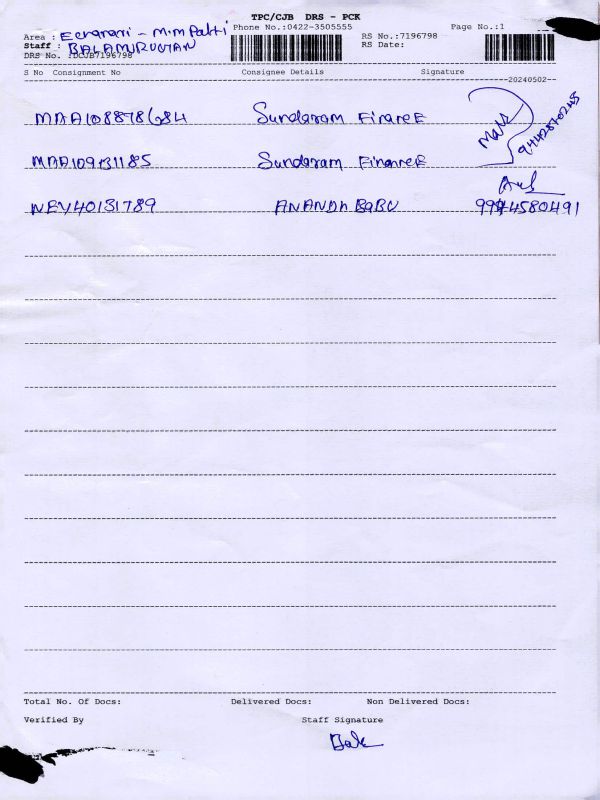 TPC/CJB DRS - PCK
Area : Phone No.:0422-3505555 RS No.:7196798 Page No.:1
Staff : BALAMURUGAN RS Date:
DRS No. :DCJB7196798
S No Consignment No Consignee Details Signature
20240502
MAA108878684 Sundaram Finance
MAA109131185 Sundaram Finance
NEY40131789 ANANDA BABU 9994580491
Total No. Of Docs: Delivered Docs: Non Delivered Docs:
Verified By Staff Signature